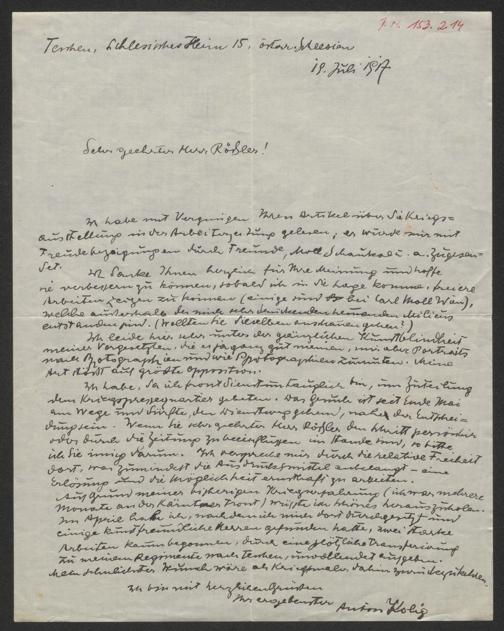 153.214
Teschen, Schlesisches Heim 15, österr. Schlesien
19. Juli 1917
Sehr geehrter Herr Rößler!
Ich habe mit Vergnügen Ihren Artikel über die Kriegs=
ausstellung in der Arbeiterzeitung gelesen, er wurde mir mit
Freudebezeigungen durch Freunde, Moll Schaukal u. a. zugesen-
det.
Ich danke Ihnen herzlich für Ihre Meinung und hoffe
sie verbessern zu können, sobald ich in die Lage komme, freiere
Arbeiten zeigen zu können (einige sind bei Carl Moll Wien),
welche außerhalb des mich sehr hemmenden Milieus
entstanden sind. (Wollten Sie dieselben anschauen gehen?)
Ich leide hier sehr unter der gänzlichen Kunstblindheit
meiner Vorgesetzten. Die es fangen mir aber Portraits
nach Photographien und wie Photographien zumuten. Meine
Art stößt auf größte Opposition.
Ich habe, da ich frontdienstuntauglich bin, um Zuteilung
dem Kriegspressequartier gebeten. Das Gesuch ist seit Ende Mai
am Wege und dürfte, den Dienstweg gehend, nahe der Entschei-
dung sein. Wenn Sie sehr geehrter Herr Rößler den Schritt persönlich
oder durch die Zeitung zu beeinflussen im Stande sind, so bitte
ich Sie innig darum. Ich verspreche mir durch die relative Freiheit
dort, was zumindest die Ausdrucksmittel anbelangt – eine
Erlösung und die Möglichkeit ernsthaft zu arbeiten.
Auf Grund meiner bisherigen Kriegserfahrung (ich war mehrere
Monate an der Kärntner Front) wüßte ich schönes herauszuholen.
Im April hatte ich, nachdem ich mich dort durchgesetzt und
einige kunstfreundliche Herren gefunden hatte, zwei starke
Arbeiten kaum begonnen, durch eine plötzliche Transferierung
zu meinem Regimente nach Teschen, unvollendet aufgeben.
Mein sehnlichster Wunsch wäre als Kriegsmaler dahin zurückzukehren.
Ich bin mit herzlichen Grüßen
Ihr ergebenster Anton Kolig